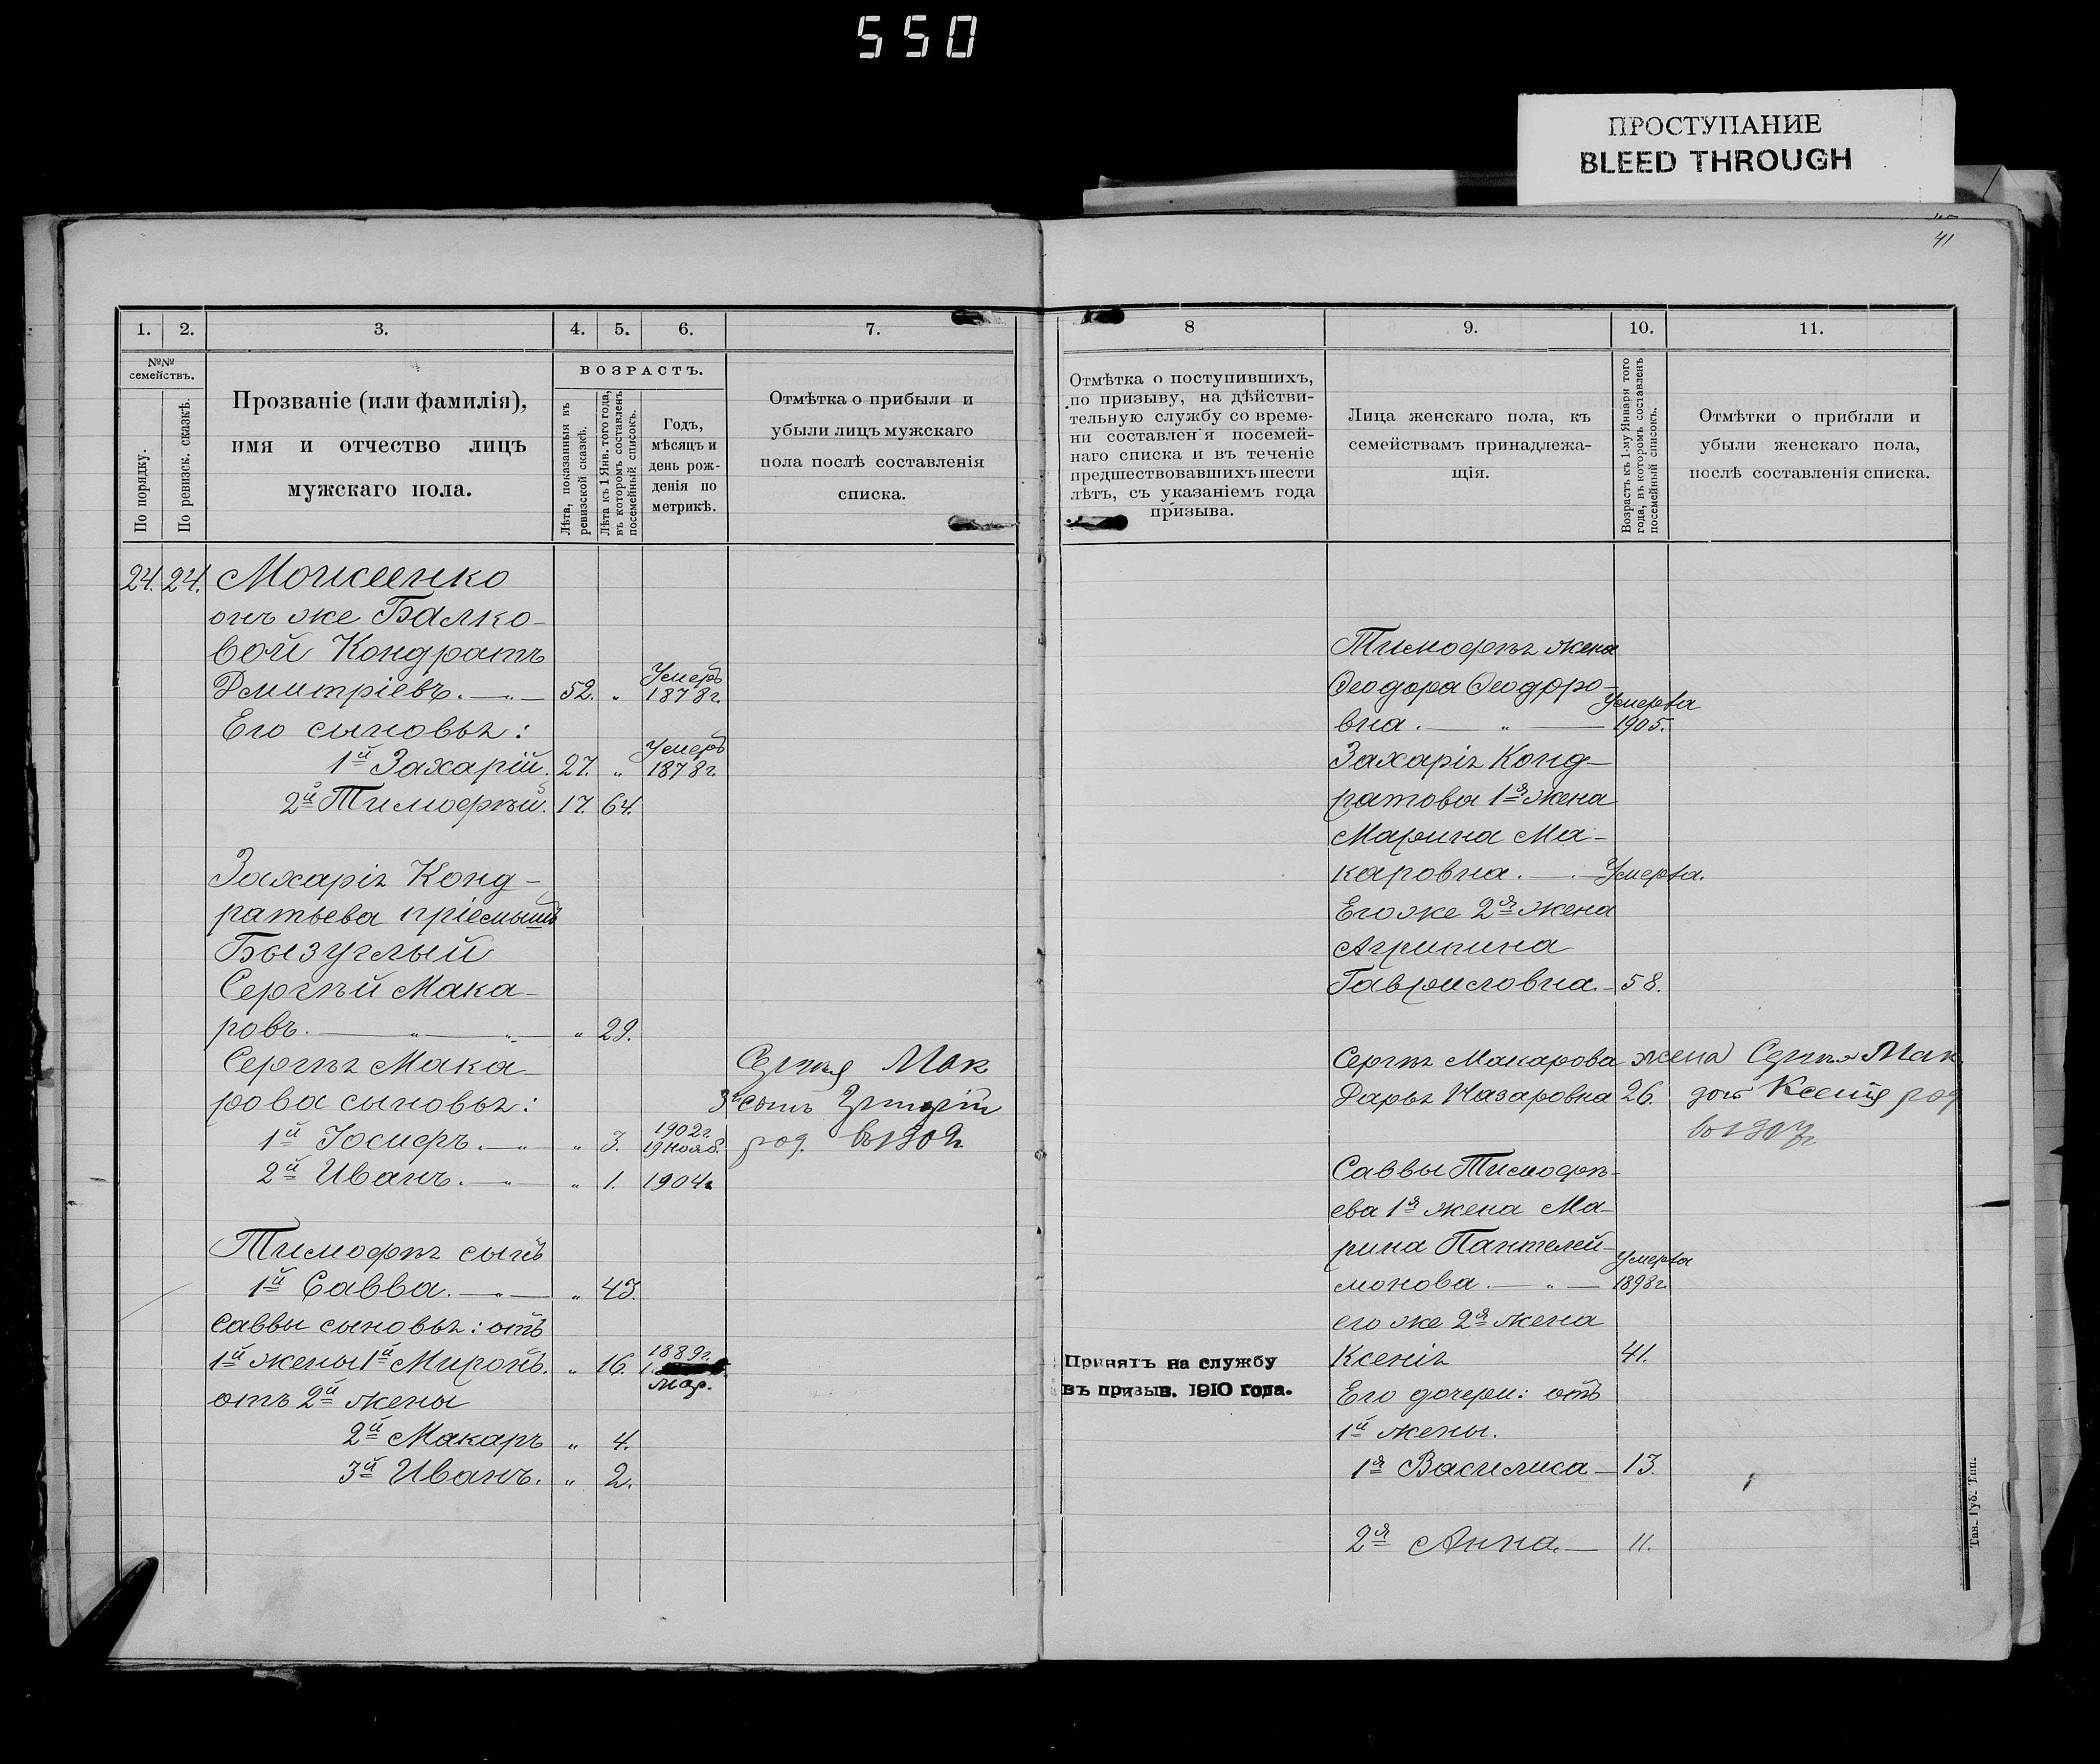 550
ПРОСТУПАНИЕ
BLEED THROUGH
41
1. 2. 3. 4. 5. 6. 7.
№№ семействъ.
По порядку.
По ревизск. сказкѣ.
Прозваніе (или фамилія),
имя и отчество лицъ
мужскаго пола.
ВОЗРАСТЪ.
Лѣта, показанныя въ
ревизской сказкѣ.
Лѣта къ 1 Янв. того года,
въ которомъ составленъ
посемейный списокъ.
Годъ,
мѣсяцъ и
день рож-
денія по
метрикѣ.
Отмѣтка о прибыли и
убыли лицъ мужскаго
пола послѣ составленія
списка.
24. 24. Моисеенко
онъ же Балко-
вой Кондратъ
Умеръ
Дмитріевъ. 52. „ 1878г.
Его сыновья:
Умеръ
1й Захарій. 27. „ 1878г.
2й Тимофѣй. 17. 64.
Захарія Конд-
ратьева пріемышъ
Сергѣй Мака-
ровъ. „ 29.
Сергѣя Мака- Сергѣя Мак
рова сыновья: 3й сынъ Григорій
1902г.
1й Іосифъ. „ 3. 19 Нояб. род. въ 190
2й Иванъ. „ 1. 1904г
Тимофѣя сынъ
1й Савва. „ 43.
Саввы сыновья: отъ
1889г.
1й жены 1й Миронъ. „ 16. 1
Мар.
отъ 2й жены
2й Макаръ „ 4.
3й Иванъ. „ 2.
8 9. 10. 11.
Отмѣтка о поступившихъ,
по призыву, на дѣйстви-
тельную службу со време-
ни составлен я посемей-
наго списка и въ теченіе
предшествовавшихъ шести
лѣтъ, съ указаніемъ года
призыва.
Лица женскаго пола, къ
семействамъ принадлежа-
щія.
Возрастъ къ 1-му Января того
года, въ которомъ составленъ
посемейный списокъ.
Отмѣтки о прибыли и
убыли женскаго пола,
послѣ составленія списка.
Тимофѣя жена
Ѳеодора Ѳеодоро-
Умерла
вна. „ 1905.
Захарія Конд-
ратова 1я жена
Марина Ма-
каровна. Умерла.
Его же 2я жена
Агрипина
Гавриловна. 58.
Сергѣя Макарова жена Сергѣя Мак.
Дарья Назаровна 26. доч Ксенія род
въ 1907г
Саввы Тимофѣ-
ева 1я жена Ма-
рина Пантелей-
Умерла
монова. „ 1898г.
его же 2я жена
Принятъ на службу
въ призыв. 1910 года.
Ксенія 41.
Его дочери: отъ
1й жены.
1я Василиса 13.
2я Анна. 11.
Тав. Губ. Тип.